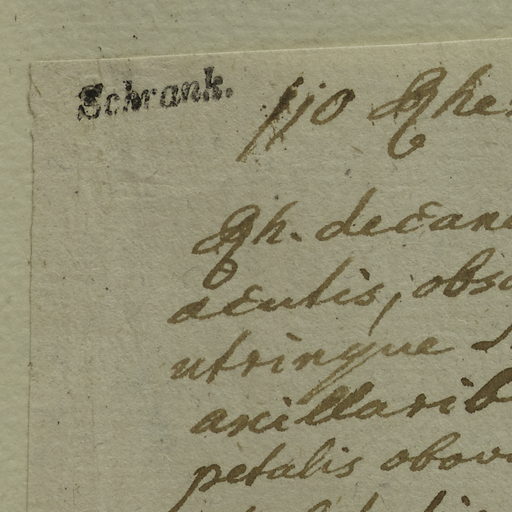 Schrank.
Rh. decan
acutis, obs
utrinque
axillarib
petalis obov